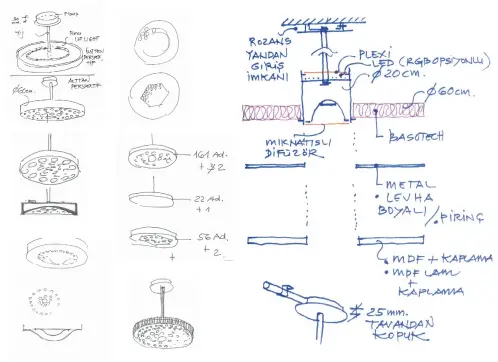 UP LIGHT
ALTTAN
PERSPEKTİF
Ø60cm.
161 Ad.
+ 32
22 Ad.
+ 1
56 Ad.
+ 2
+
ROZANS
YANDAN
GİRİŞ
İMKANI
PLEXI
LED (RGB OPSİYONLU)
Ø20cm.
Ø60cm.
BASOTECH
MIKNATISLI
DİFÜZÖR
• METAL
• LEVHA
BOYALI
/ PİRİNÇ
• MDF + KAPLAMA
• MDF LAM
+
KAPLAMA
25mm.
TAVANDAN
KOPUK